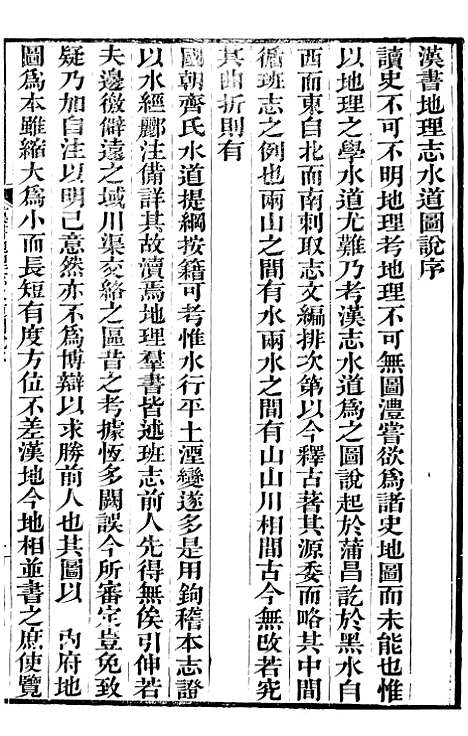 漢書地理志水道圖說序
讀史不可不明地理考地理不可無圖澧嘗欲爲諸史地圖而未能也惟
以地理之學水道尤難乃考漢志水道爲之圖說起於蒲昌訖於黑水自
西而東自北而南刺取志文編排次第以今釋古著其源委而略其中間
循班志之例也兩山之間有水兩水之間有山山川相間古今無改若究
其曲折則有
國朝齊氏水道提綱按籍可考惟水行平土湮變遂多是用鉤稽本志證
以水經酈注備詳其故瀆焉地理羣書皆述班志前人先得無俟引伸若
夫邊徼僻遠之域川渠交絡之區昔之考據恆多闕誤今所審定豈免致
疑乃加自注以明己意然亦不爲博辯以求勝前人也其圖以 內府地
圖爲本雖縮大爲小而長短有度方位不差漢地今地相並書之庶使覽